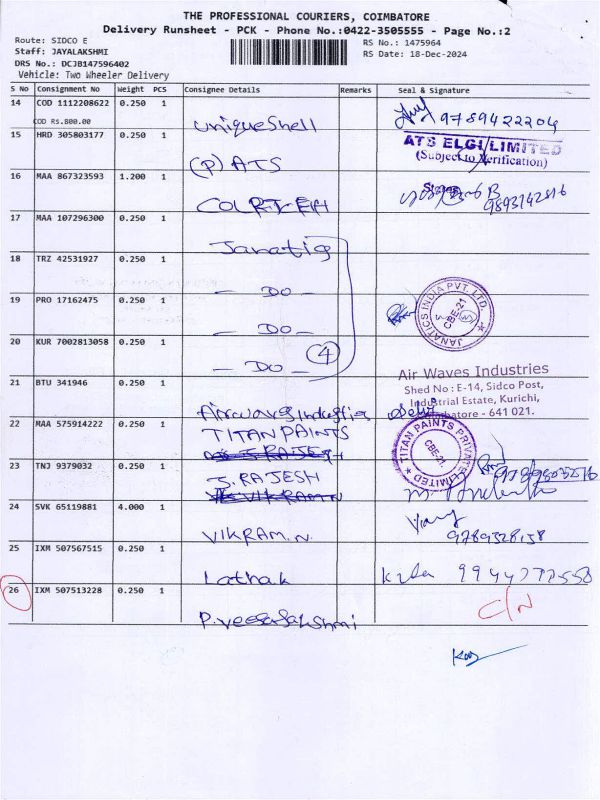 THE PROFESSIONAL COURIERS, COIMBATORE
Delivery Runsheet - PCK - Phone No.:0422-3505555 - Page No.:2
Route: SIDCO E
Staff: JAYALAKSHMI
DRS No.: DCJB147596402
Vehicle: Two Wheeler Delivery
RS No.: 1475964
RS Date: 18-Dec-2024
S No Consignment No Weight PCS Consignee Details Remarks Seal & Signature
14 COD 1112208622 0.250 1
COD Rs.800.00
uniqueshell 9789422204
15 HRD 305803177 0.250 1
(P) ATS
ATS ELGI LIMITED
(Subject to Verification)
16 MAA 867323593 1.200 1
17 MAA 107296300 0.250 1
Janatig
18 TRZ 42531927 0.250 1
— DO —
19 PRO 17162475 0.250 1
— DO —
JANATICS INDIA PVT. LTD.
CBE-21
20 KUR 7002813058 0.250 1
— DO — 4
21 BTU 341946 0.250 1
Air Waves Industries
Shed No : E-14, Sidco Post,
Industrial Estate, Kurichi,
Coimbatore - 641 021.
22 MAA 575914222 0.250 1
TITAN PAINTS
TITAN PAINTS PRIVATE LIMITED
CBE-21.
23 TNJ 9379032 0.250 1
S. RAJESH
24 SVK 65119881 4.000 1
VIKRAM. N. 9789328158
25 IXM 507567515 0.250 1
Lathak
26 IXM 507513228 0.250 1
C/N